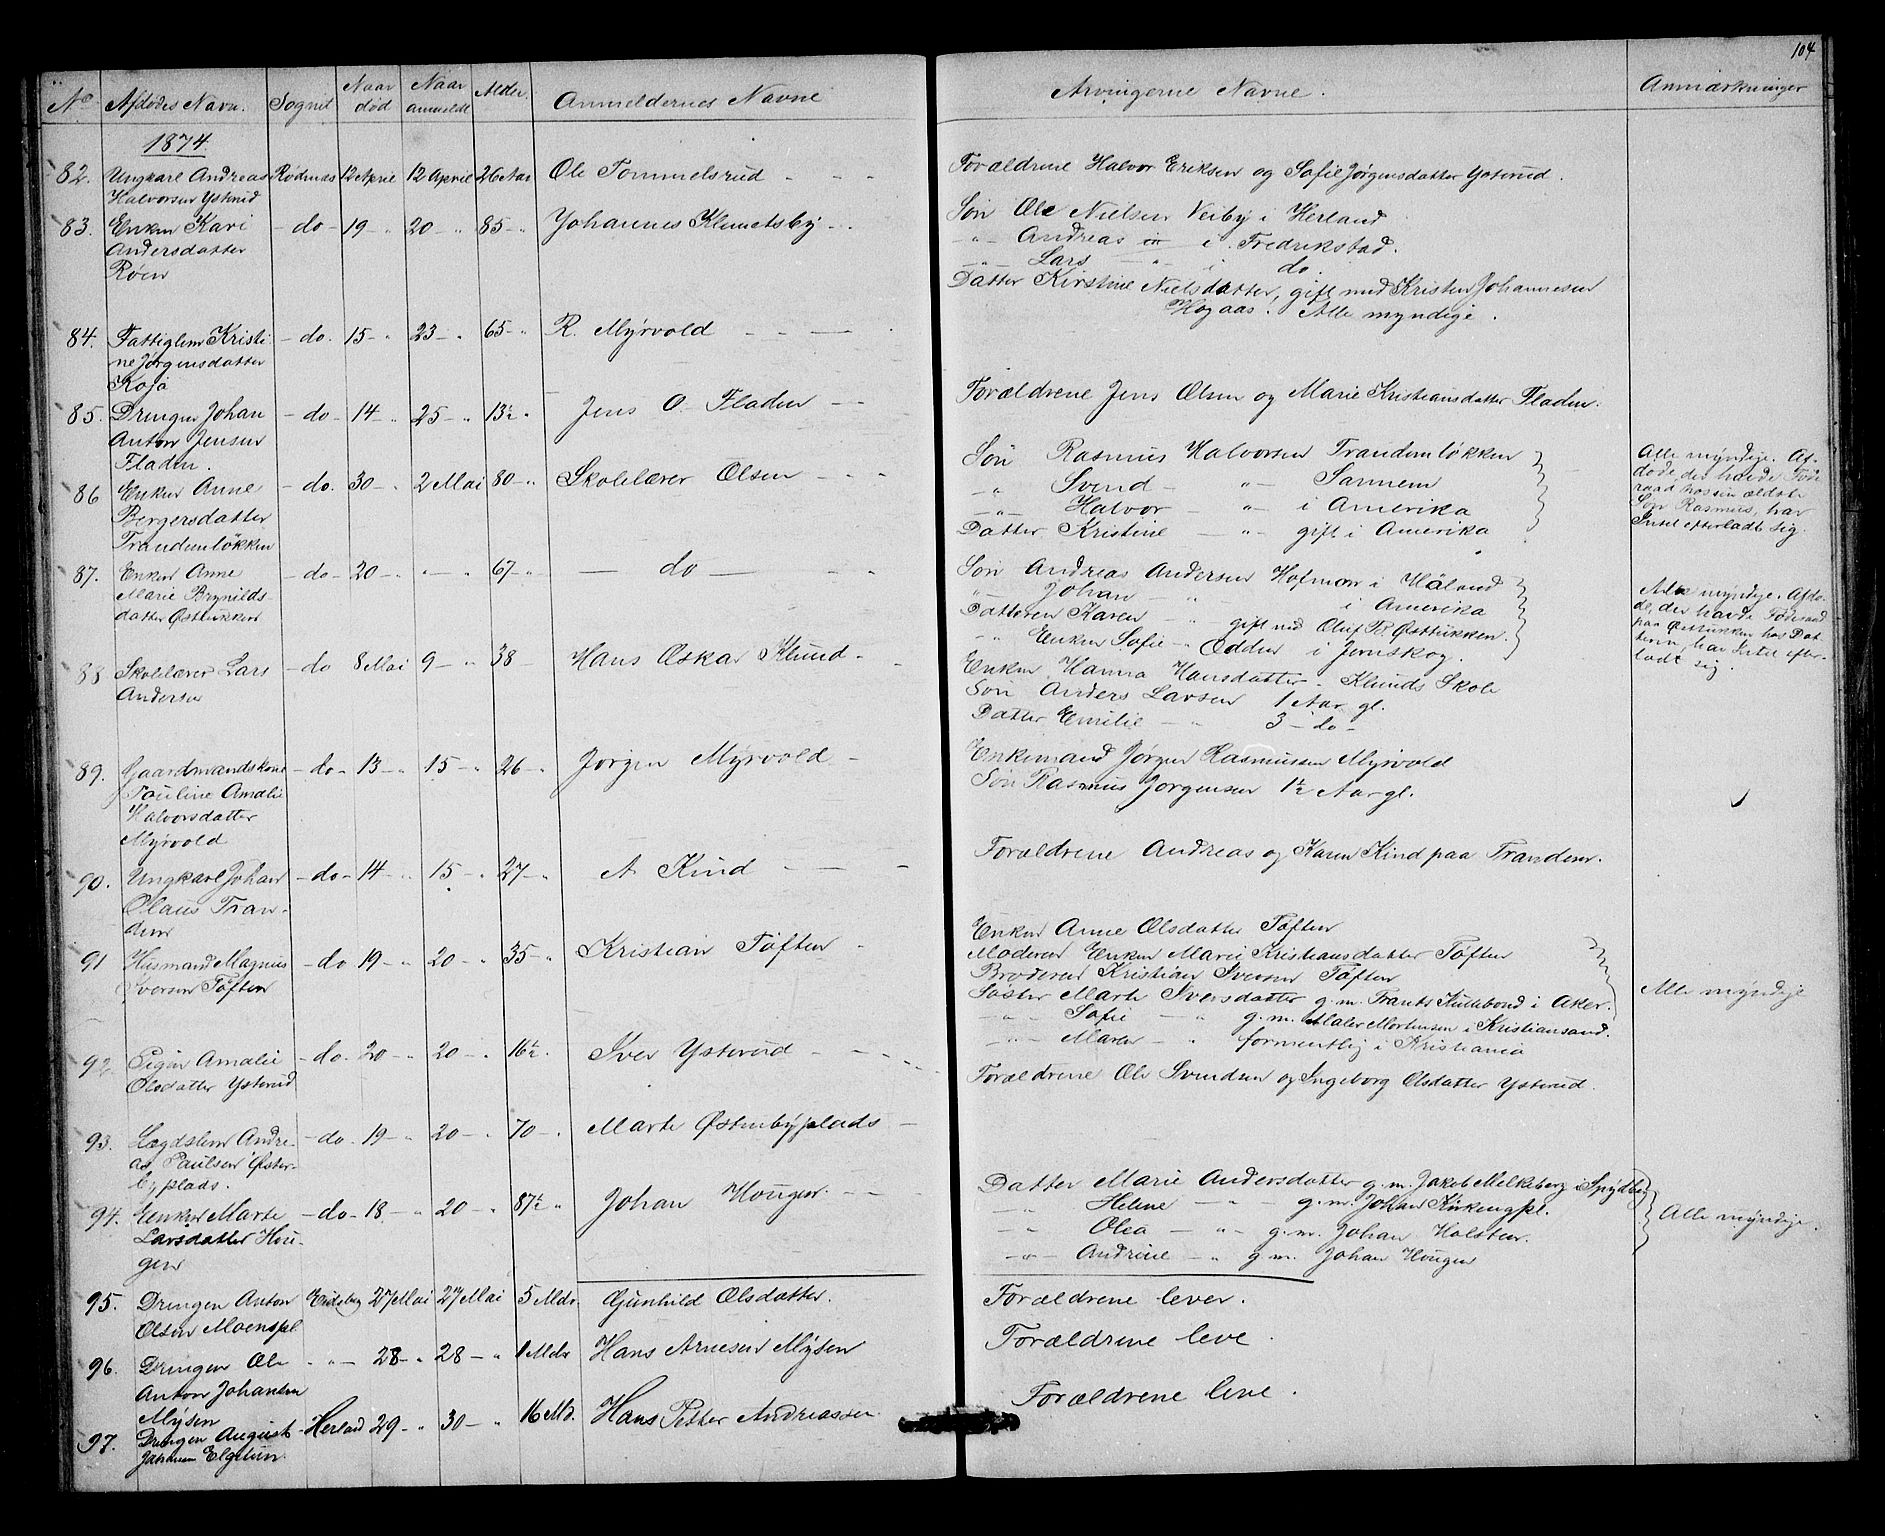 104
No Afdødes Navn. Sognet Naar død Naar anmeldt Alder. Anmeldernes Navne Arvingerne Navne. Anmærkninger
1874
82. Ungkarl Andreas Rødenæs 12 April 12 April 26 Aar Ole Tommelsrud - - - Forældrene Halvor Eriksen og Sofie Jørgensdatter Ysterud.
Halvorsen Ysterud
83. Enken Kari - do - 19 - " 20 - " 85 - " Johannes Klemetsby - - Søn Ole Nielsen Veiby i Herland
Andersdatter - " - Andreas - i Fredrikstad.
Røen - " - Lars - " - i do.
Datter Kirstine Nielsdatter, gift med Kristen Johannesen
Høgaas. Alle myndige.
84. Fattiglem Kristi- - do. 15 - " 23 - " 65 - " R. Myrvold - - -
ne Jørgensdatter
Kojo
85. Drengen Johan - do - 14 - " 25 - " 13½ " Jens O. Fladen - - Forældrene Jens Olsen og Marie Kristiansdatter Fladen.
Anton Jensen
Fladen.
86 Enken Anne - do. 30 - " 2 Mai 80 - " Skolelærer Olsen - - Søn Rasmus Halvorsen Trandemløkken
Bergersdatter - " - Svend - " - Sannem
Trandemløkken - " - Halvor - " - i Amerika
Datter Kristine - " - gift i Amerika
Alle myndige. Af-
døde, der havde Føde-
raad hos sin ældste
Søn Rasmus, har
Intet efterladt sig.
87. Enken Anne - do - 20 - " " - " 67 - " - do - - - Søn Andreas Andersen Hofmoen i Høland
Marie Brynilds- " Johan - " i Amerika
datter Østtukken Datteren Karen - " gift med Oluf B. Østtukken.
" Enken Sofie - " Odden i Jernskog.
Alle myndige. Afdø-
de, der havde Føderaad
paa Østtukken hos Dat-
teren, har Intet efter-
ladt sig.
88 Skolelærer Lars - do 8 Mai 9 - " 38 - Hans Oskar Klund - - Enken Hanna Hansdatter - Klunds Skole
Andersen Søn Anders Larsen 1 Aar gl.
Datter Emilie - " 3 - do -
89. Gaardmandskone - do - 13 - " 15 - " 26 - " Jørgen Myrvold - Enkemand Jørgen Rasmussen Myrvold
Pauline Amalie Søn Rasmus Jørgensen 1½ Aar gl.
Halvorsdatter
Myrvold
90. Ungkarl Johan - do - 14 - " 15 - " 27 - " A. Kind - - - Forældrene Andreas og Karen Kind paa Trandem.
Olaus Tran-
dem
91 Husmand Magnus - do 19 - " 20 - " 35 - " Kristian Tøften - Enken Anne Olsdatter Tøften
Iversen Tøften Moderen Enken Marie Kristiansdatter Tøften
Broderen Kristian Iversen Tøften
Søster Marte Iversdatter g.m. Frants Kullebond i Aker.
- " - Sofie - " g.m. Maler Mortensen i Kristiansand.
- " - Maren - " formentlig i Kristiania
Alle myndige
92. Pigen Amalie - do - 20 - " 20 - " 16½. Iver Ysterud - - - Forældrene Ole Svendsen og Ingeborg Olsdatter Ysterud.
Olsdatter Ysterud
93. Lægdslem Andre- - do - 19 - " 20 - " 70 - " Marte Østenbyplads -
as Paulsen Øster-
byplads.
94. Enken Marte - do - 18 - " 20 - " 87½ " Johan Hougen - - Datter Marie Andersdatter g.m. Jakob Melkeberg i Spydberg
Larsdatter Hou- " Helene - " - g.m. Johan Kirkengpl.
gen " Olea - " - g.m. Johan Holsten.
- " - Andrine - " g.m. Johan Hougen
Alle myndige.
95. Drengen Anton Eidsberg 27 Mai 27 Mai 5 Mdr. Gunhild Olsdatter. Forældrene lever.
Olsen Moenspl.
96. Drengen Ole - " - 28 - " 28 - " 1 Mdr Hans Arnesen Mysen Forældrene leve.
Anton Johansen
Mysen
97. Drengen August - Herland 29 - " 30 - " 16 Md. Hans Petter Andreassen Forældrene leve.
Johansen Elgetun.